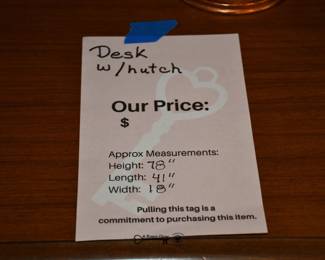 Desk
w/hutch
Our Price:
$
Approx Measurements:
Height: 78"
Length: 41"
Width: 18"
Pulling this tag is a
commitment to purchasing this item.